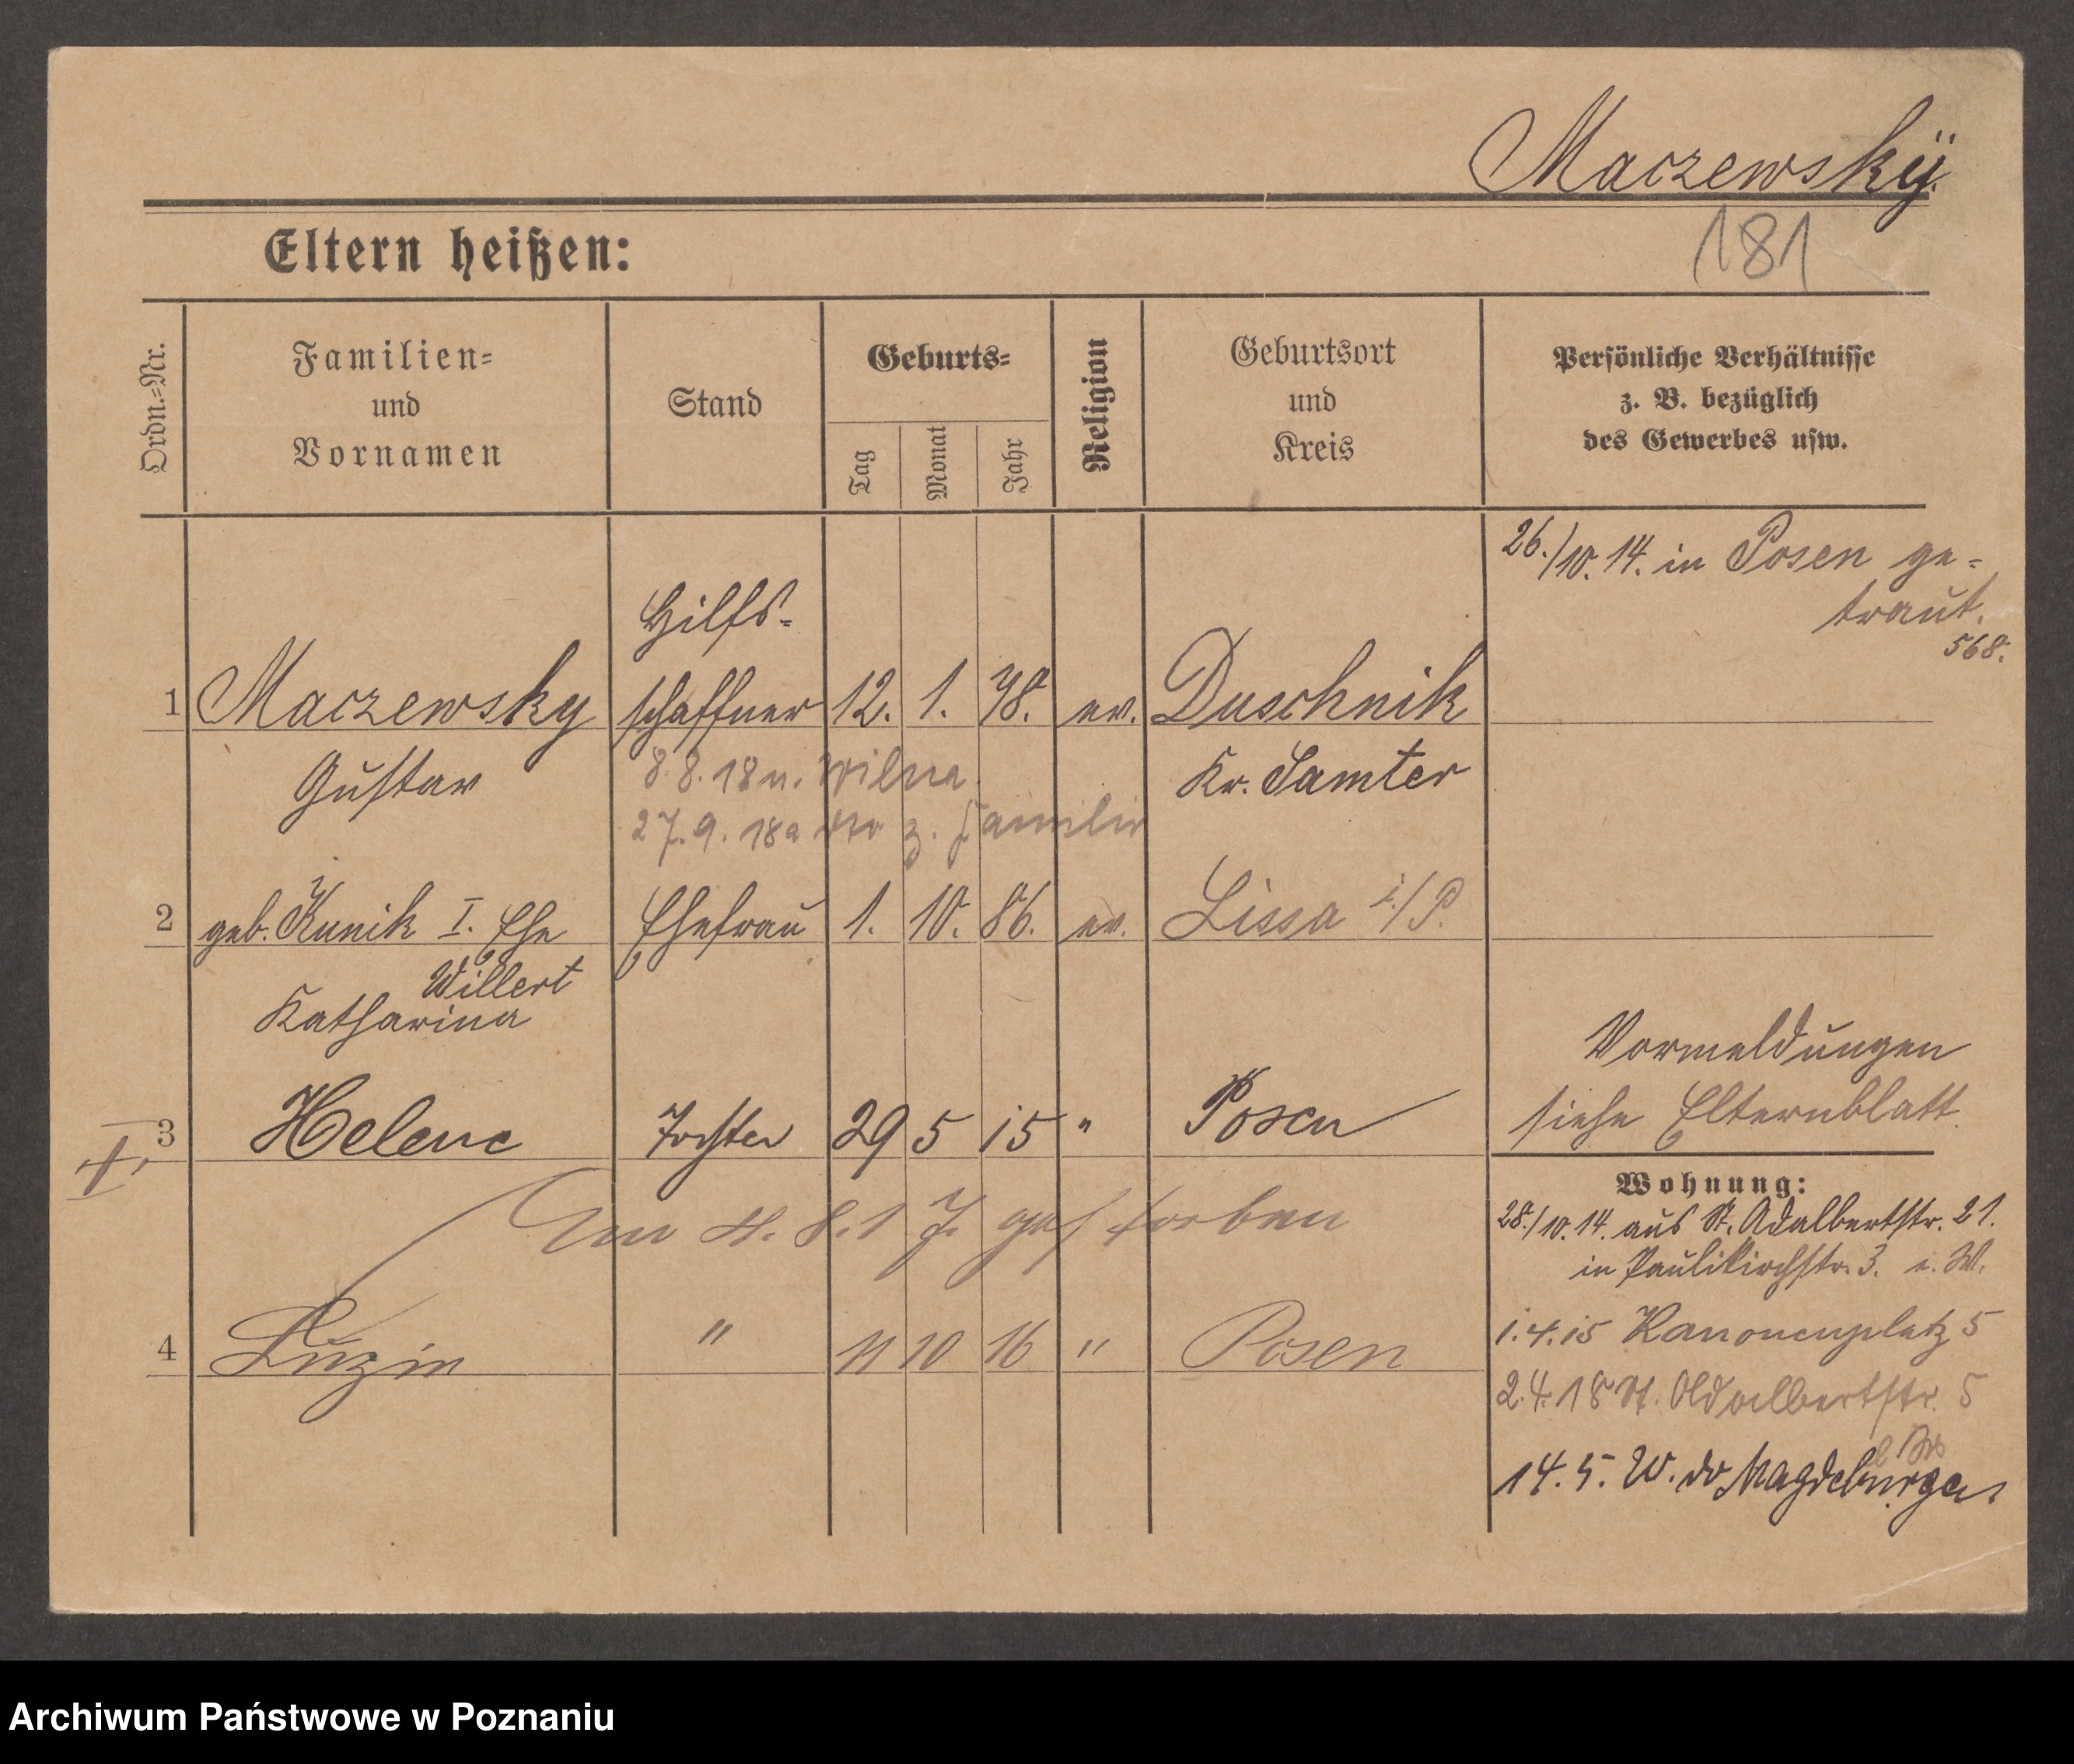 Maczewsky.
181
Eltern heißen:
Ordn.=Nr.
Familien=
und
Vornamen
Stand
Geburts=
Tag
Monat
Jahr
Religion
Geburtsort
und
Kreis
Persönliche Verhältnisse
z. B. bezüglich
des Gewerbes usw.
26./10. 14. in Posen ge=
traut.
568.
Hilfs=
1 Maczewsky schaffner 12. 1. 78. ev. Duschnik
Gustav Kr. Samter
8. 8. 18 n. Wilna.
27. 9. 18 z. Familie
2 geb. Kunik I. Ehe Ehefrau 1. 10. 86. ev. Lissa i./P.
Willert
Katharina
Vormeldungen
siehe Elternblatt.
3 Helene Tochter 29 5 15 " Posen
Wohnung:
am 4. 8. 17. gestorben
28./10. 14. aus St. Adalbertstr. 21.
in Paulikirchstr. 3. i. W.
4 Luzie " 11 10 16 " Posen
1. 4. 15 Kanonenplatz 5
2. 4. 18 St. Adalbertstr. 5
14. 5. do Magdeburga
Archiwum Państwowe w Poznaniu